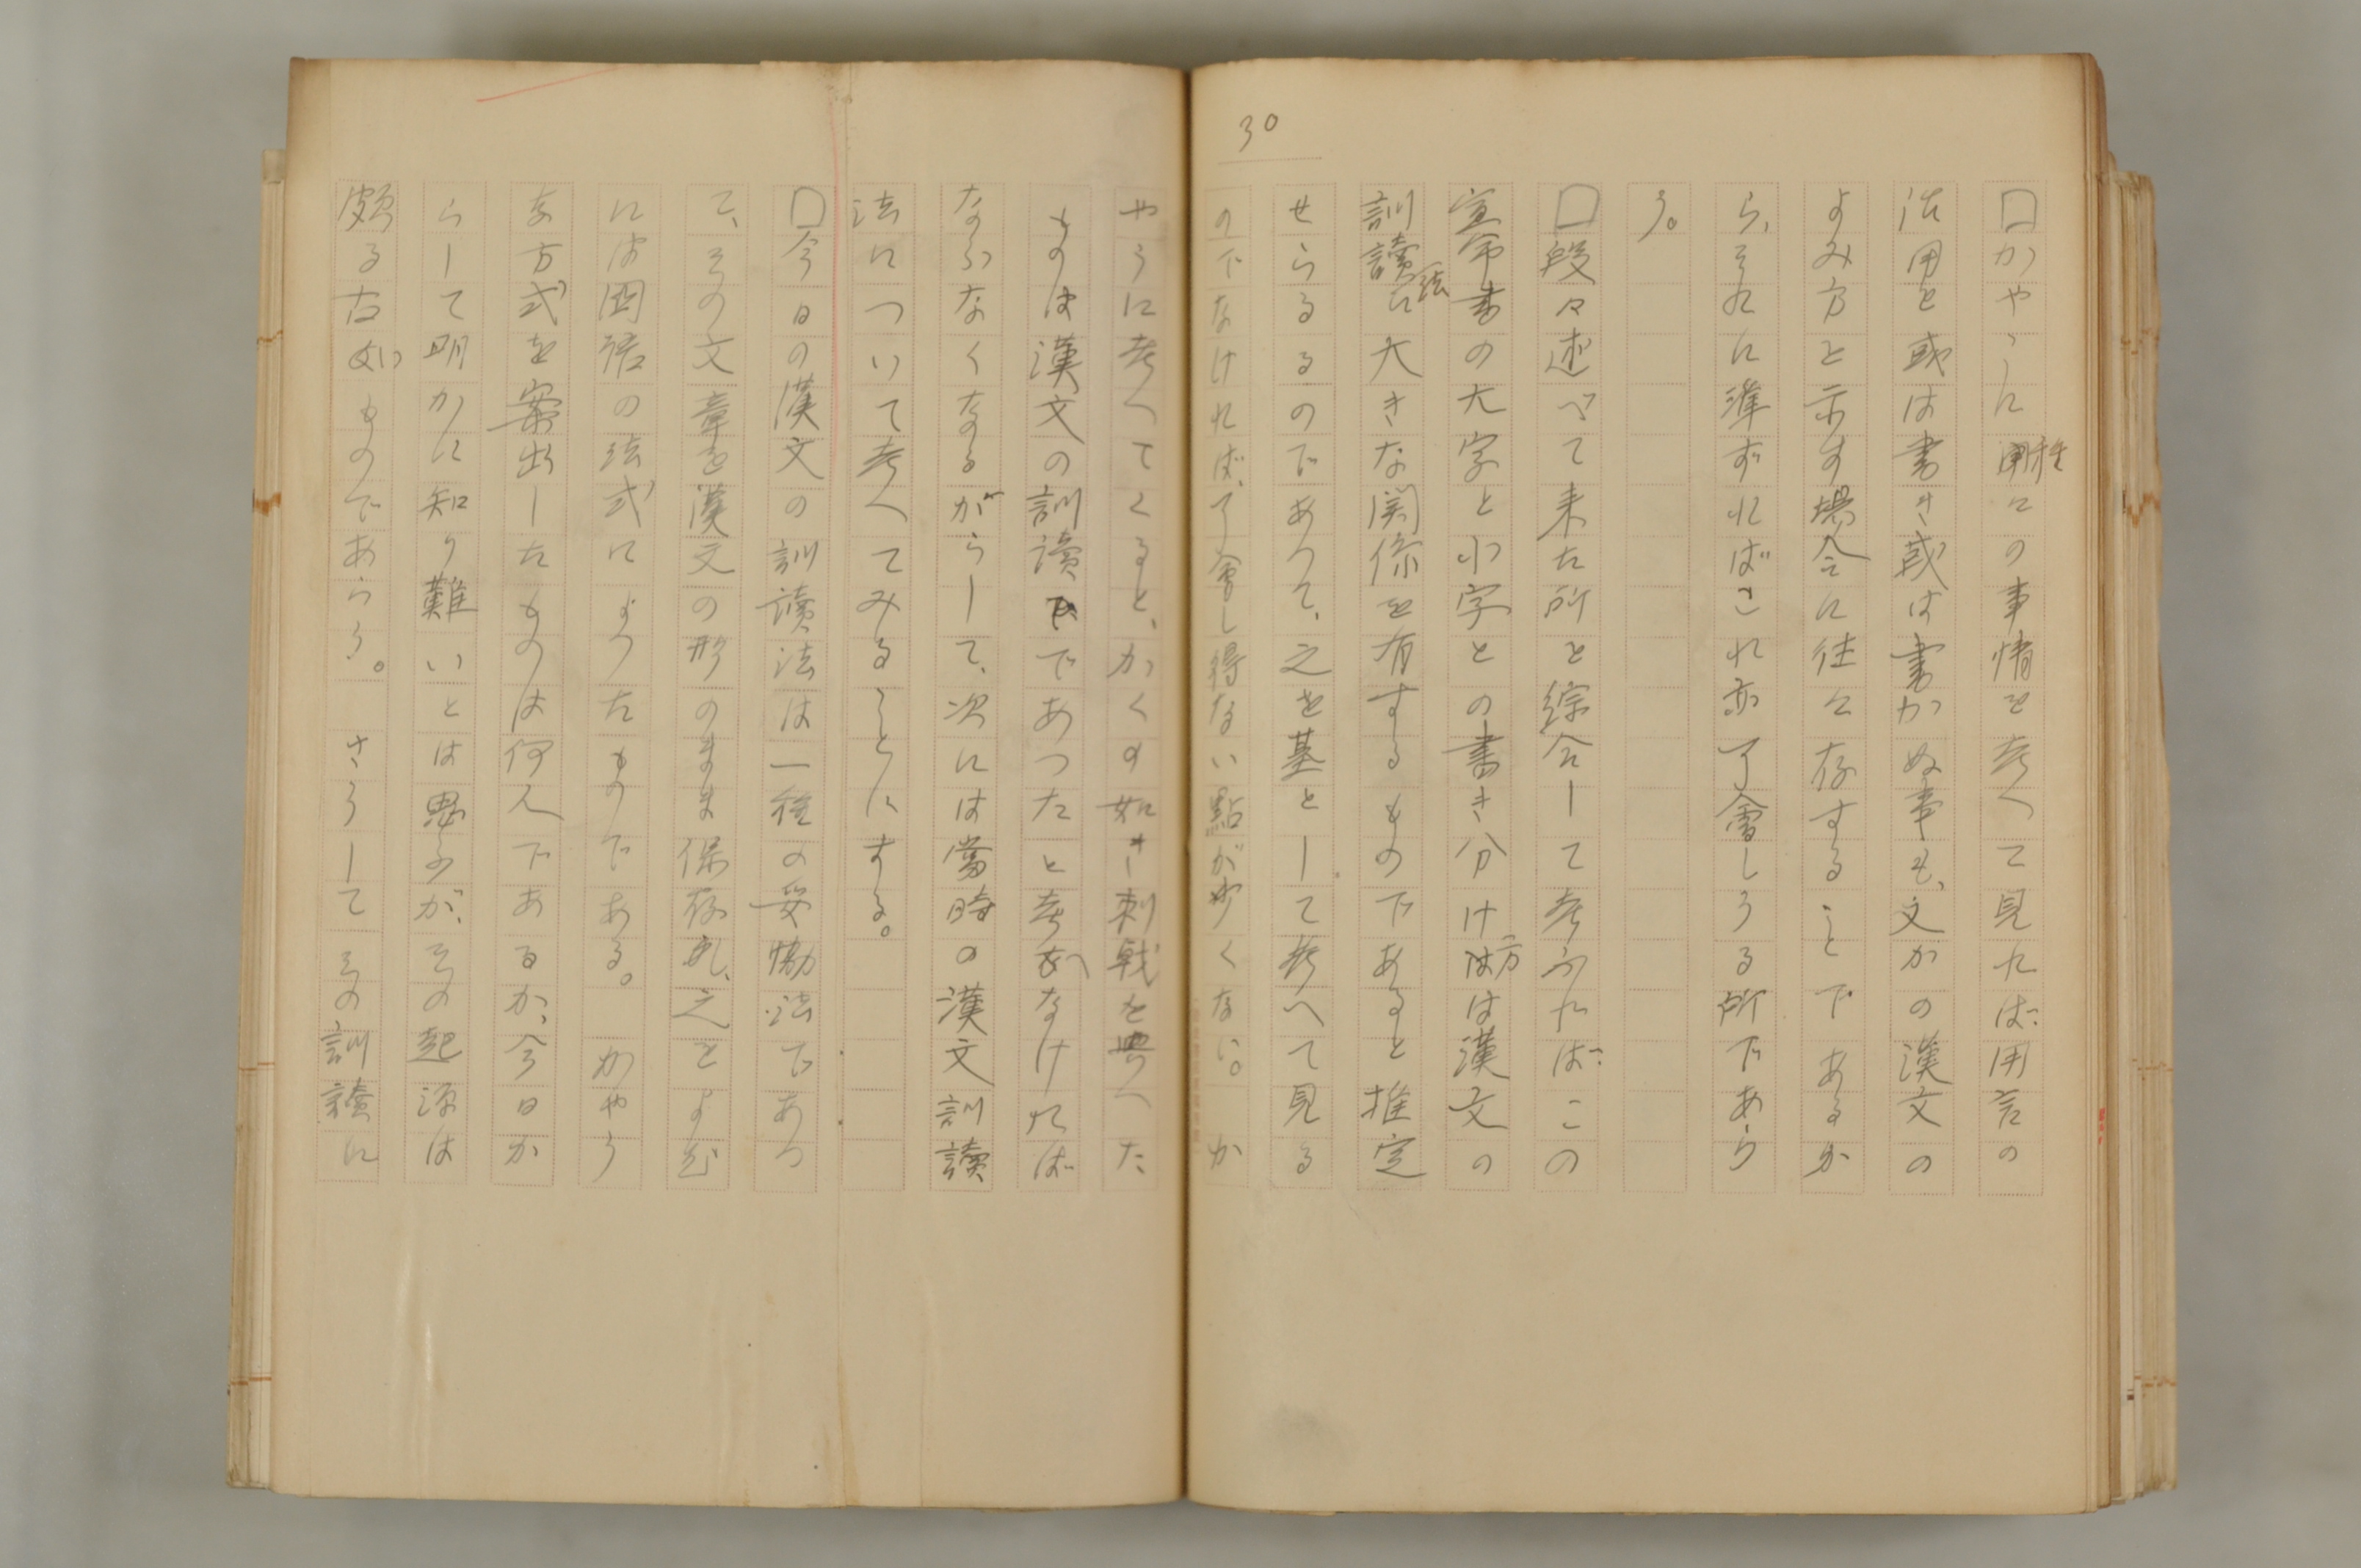 30
□かやうに種々の事情を考へて見れば、用言の
活用を或は書き或は書かぬ事も、文かの漢文の
よみ方を示す場合に往々存することであるか
ら、それに準ずればこれ亦了會しうる所であら
う。
□段々述べて来た所を綜合して考ふれば、この
宣命書の大字と小字との書き分け方は漢文の
訓讀法に大きな関係を有するものであると推定
せらるるのであつて、之を基として考へて見る
のでなければ、了會し得ない點が少くない。か
やうに考へてくると、かくの如き刺戟を與へた
ものは漢文の訓讀であつたと考へなければ
ならなくなるがらして、次には當時の漢文訓讀
法について考へてみることにする。
□今日の漢文の訓讀法は一種の妥協法であつ
て、その文章を漢文の形のまま保存し、之をよむ
には國語の法式によつたものである。かやう
な方式を案出したものは何人であるか、今日か
らして明かに知り難いとは思ふが、その起源は
頗る古いものであらう。さうしてその訓讀に